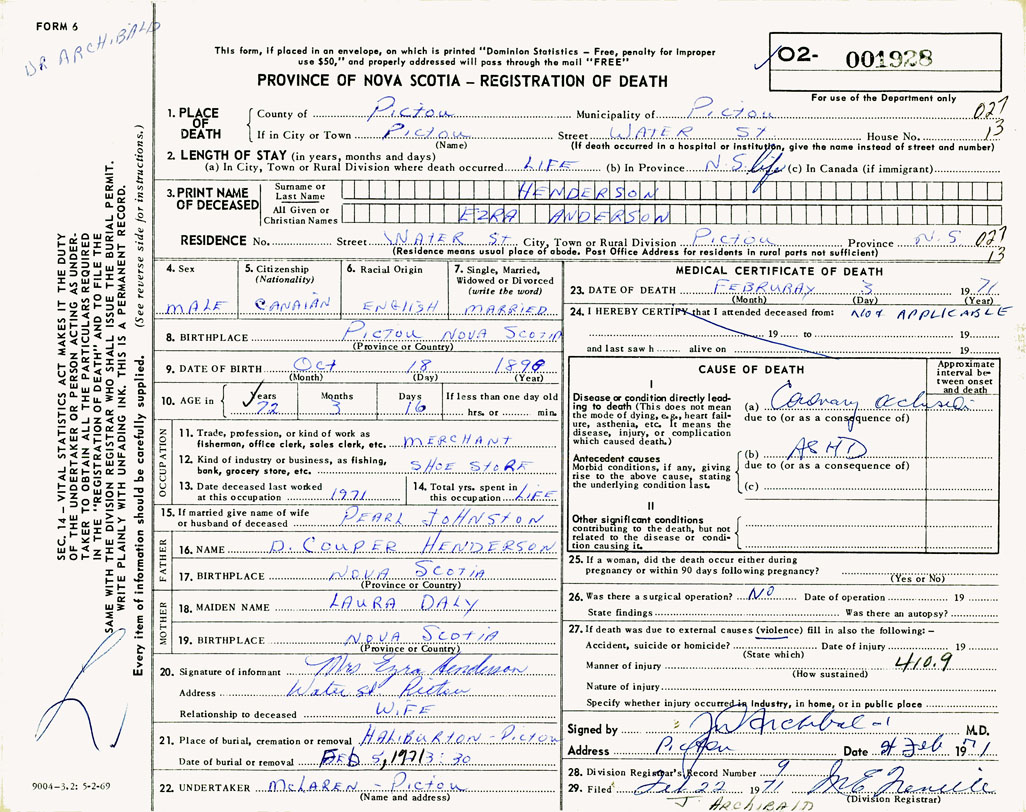 FORM 6
DR ARCHIBALD
This form, if placed in an envelope, on which is printed "Dominion Statistics – Free, penalty for improper
use $50," and properly addressed will pass through the mail "FREE"
PROVINCE OF NOVA SCOTIA – REGISTRATION OF DEATH
O2- 001928
For use of the Department only
SEC. 14 – VITAL STATISTICS ACT MAKES IT THE DUTY
OF THE UNDERTAKER OR PERSON ACTING AS UNDER-
TAKER TO OBTAIN ALL THE PARTICULARS REQUIRED
IN THE "REGISTRATION OF DEATH" AND TO FILE THE
SAME WITH THE DIVISION REGISTRAR WHO SHALL ISSUE THE BURIAL PERMIT.
WRITE PLAINLY WITH UNFADING INK. THIS IS A PERMANENT RECORD.
Every item of information should be carefully supplied. (See reverse side for instructions.)
1. PLACE OF DEATH
County of Pictou Municipality of Pictou 027
If in City or Town Pictou Street WATER ST House No. 13
(Name) (If death occurred in a hospital or institution, give the name instead of street and number)
2. LENGTH OF STAY (in years, months and days)
(a) In City, Town or Rural Division where death occurred LIFE (b) In Province N.S. life (c) In Canada (if immigrant)
3. PRINT NAME OF DECEASED
Surname or Last Name HENDERSON
All Given or Christian Names EZRA ANDERSON
RESIDENCE No. Street WATER ST City, Town or Rural Division PICTOU Province N.S 027
(Residence means usual place of abode. Post Office Address for residents in rural parts not sufficient) 13
4. Sex MALE
5. Citizenship (Nationality) CANAIAN
6. Racial Origin ENGLISH
7. Single, Married, Widowed or Divorced (write the word) MARRIED
8. BIRTHPLACE PICTOU NOVA SCOTIA
(Province or Country)
9. DATE OF BIRTH Oct 18 1898
(Month) (Day) (Year)
10. AGE in Years 72 Months 3 Days 16 If less than one day old hrs. or min.
OCCUPATION
11. Trade, profession, or kind of work as fisherman, office clerk, sales clerk, etc. MERCHANT
12. Kind of industry or business, as fishing, bank, grocery store, etc. SHOE STORE
13. Date deceased last worked at this occupation 1971
14. Total yrs. spent in this occupation LIFE
15. If married give name of wife or husband of deceased PEARL JOHNSTON
FATHER
16. NAME D. COUPER HENDERSON
17. BIRTHPLACE NOVA SCOTIA
(Province or Country)
MOTHER
18. MAIDEN NAME LAURA DALY
19. BIRTHPLACE NOVA SCOTIA
(Province or Country)
20. Signature of informant Mrs Ezra Henderson
Address Water St Pictou
Relationship to deceased WIFE
21. Place of burial, cremation or removal HALIBURTON - PICTOU
Date of burial or removal FEB 5, 1971 3:30
22. UNDERTAKER McLAREN - PICTOU
(Name and address)
9004-3.2: 5-2-69
MEDICAL CERTIFICATE OF DEATH
23. DATE OF DEATH FEBRURAY 3 1971
(Month) (Day) (Year)
24. I HEREBY CERTIFY that I attended deceased from: NOT APPLICABLE
19 to 19
and last saw h alive on 19
CAUSE OF DEATH
Approximate interval between onset and death
I
Disease or condition directly leading to death (This does not mean the mode of dying, e.g., heart failure, asthenia, etc. It means the disease, injury, or complication which caused death.)
(a) Coronary occlusion
due to (or as a consequence of)
Antecedent causes
Morbid conditions, if any, giving rise to the above cause, stating the underlying condition last.
(b) ASHD
due to (or as a consequence of)
(c)
II
Other significant conditions contributing to the death, but not related to the disease or condition causing it.
25. If a woman, did the death occur either during pregnancy or within 90 days following pregnancy?
(Yes or No)
26. Was there a surgical operation? NO Date of operation 19
State findings Was there an autopsy?
27. If death was due to external causes (violence) fill in also the following:–
Accident, suicide or homicide? Date of injury 19
(State which)
Manner of injury 410.9
(How sustained)
Nature of injury
Specify whether injury occurred in Industry, in home, or in public place
Signed by Archibald M.D.
Address Pictou Date 4 Feb 1971
28. Division Registrar's Record Number 9
29. Filed Feb 22 1971
(Division Registrar)
J. ARCHIBALD